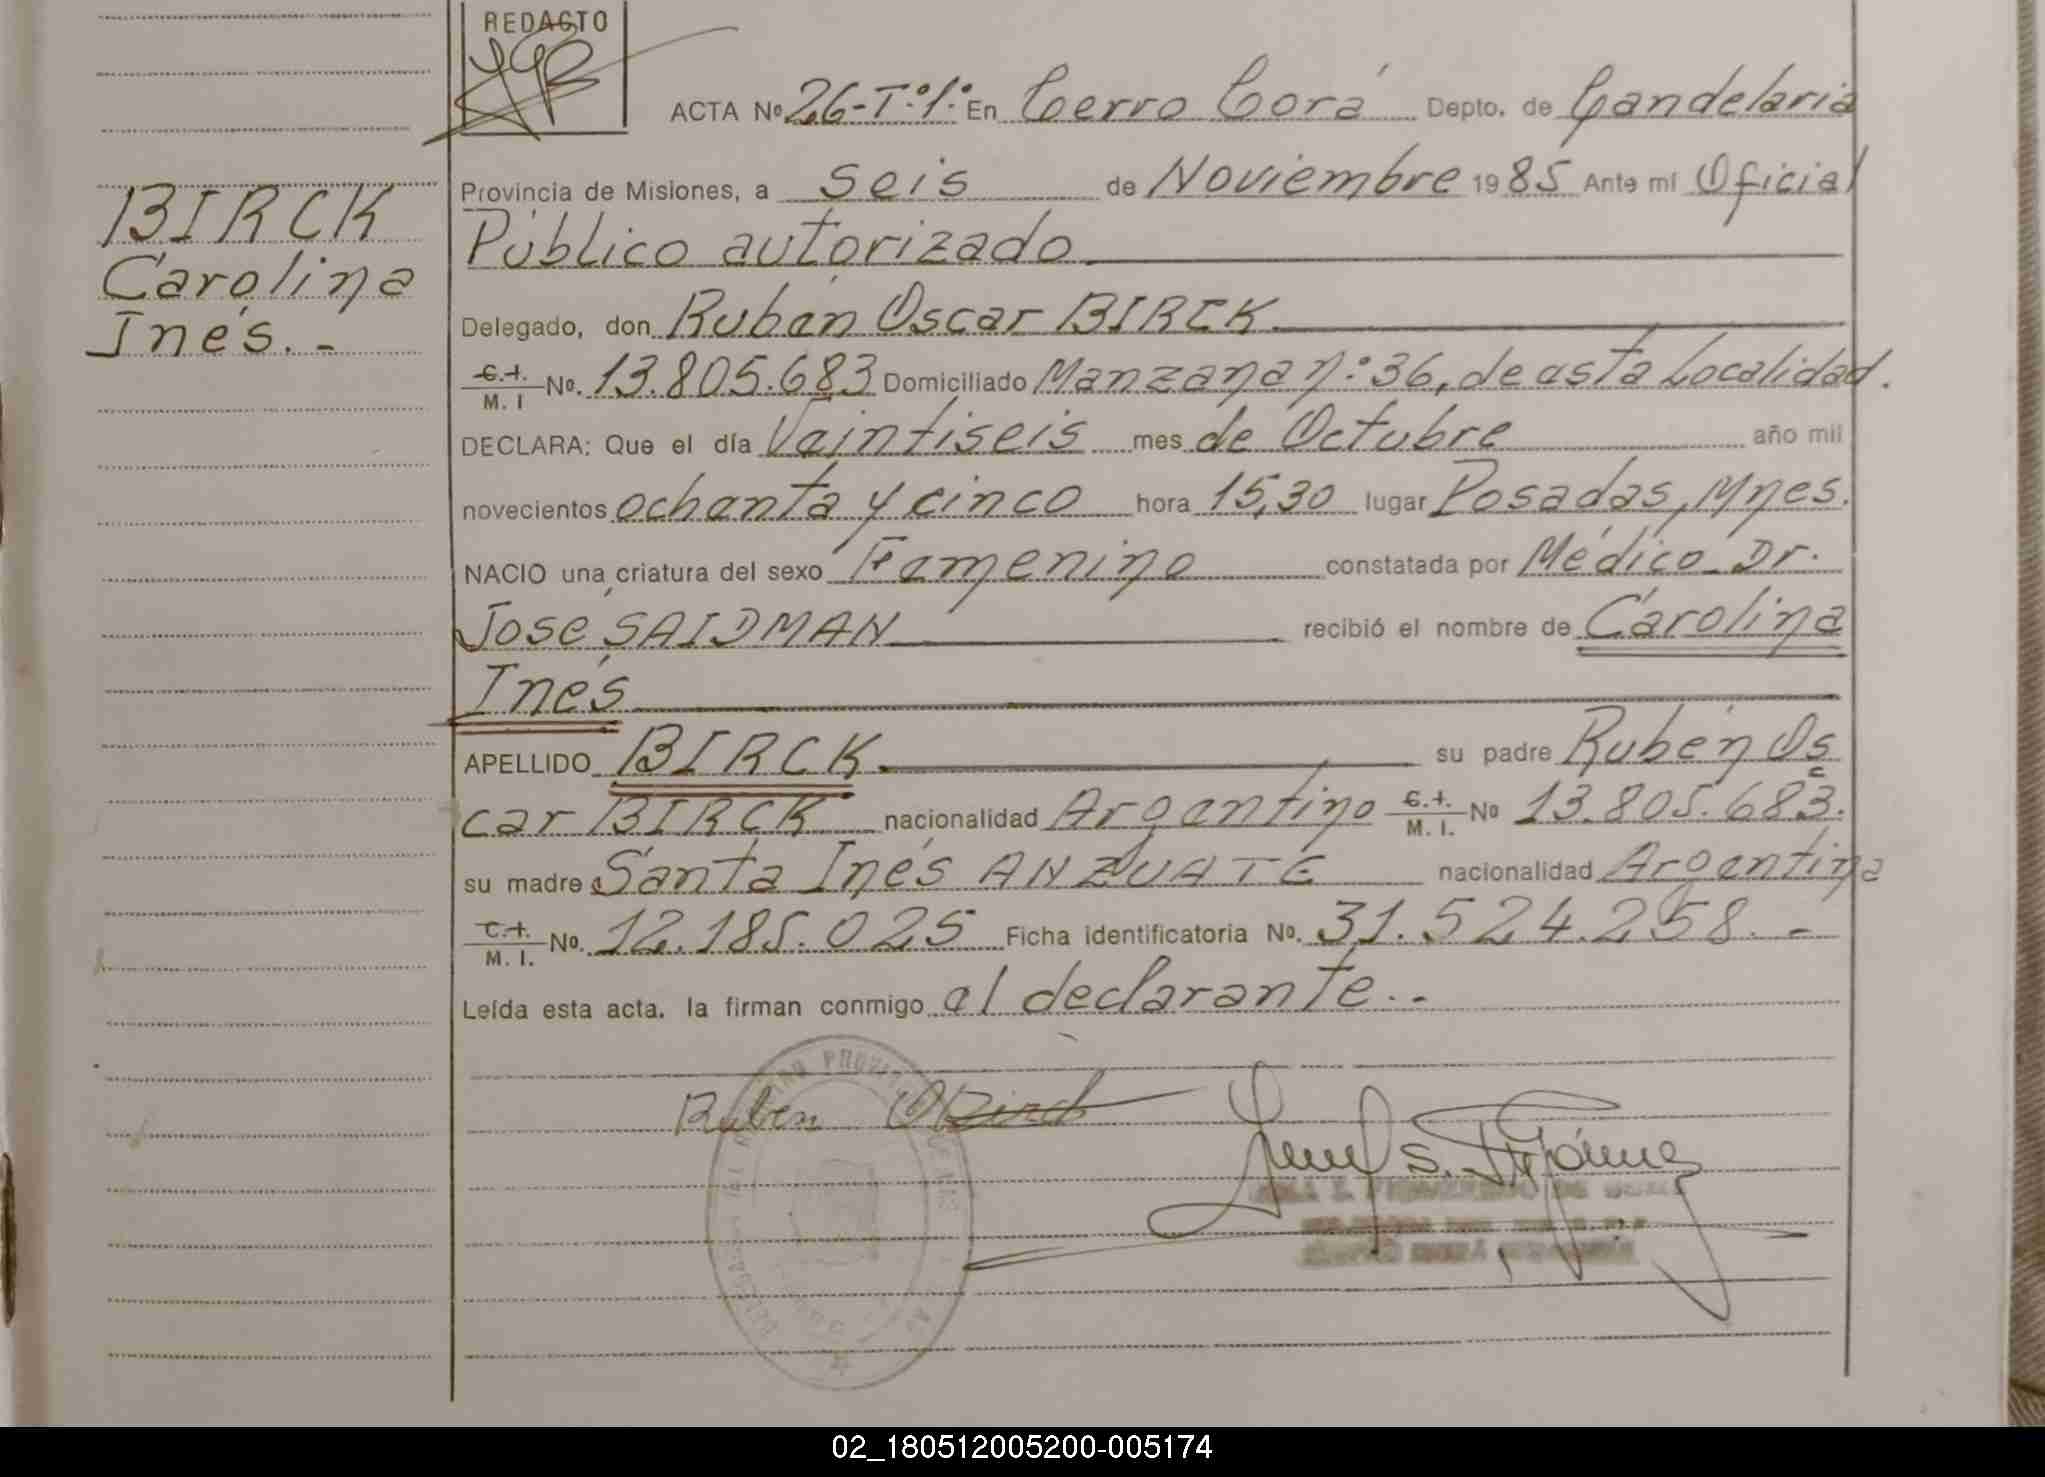 REDACTO
ACTA Nº 26-Tº1º En Cerro Corá Depto. de Candelaria
Provincia de Misiones, a seis de Noviembre 1985 Ante mí Oficial
Público autorizado
BIRCK
Carolina
Inés.-
Delegado, don Rubén Oscar BIRCK
C.I. M. I Nº. 13.805.683 Domiciliado Manzana nº 36, de esta Localidad.
DECLARA: Que el día Veintiseis mes de Octubre año mil
novecientos ochenta y cinco hora 15,30 lugar Posadas, Mnes.
NACIO una criatura del sexo Femenino constatada por Médico Dr.
José SAIDMAN recibió el nombre de Carolina
Inés
APELLIDO BIRCK su padre Rubén Os
car BIRCK nacionalidad Argentino C.I. M. I. Nº 13.805.683.
su madre Santa Inés ANZUATE nacionalidad Argentina
C.I. M. I. Nº. 12.185.025 Ficha identificatoria Nº. 31.524.258.-
Leída esta acta, la firman conmigo el declarante.-
Ruben O Birck
02_180512005200-005174